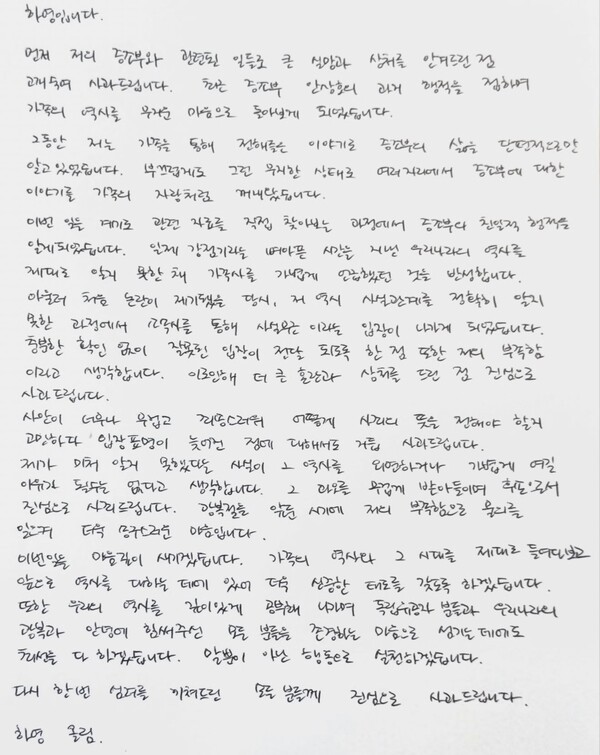 하영입니다.
먼저 저의 증조부와 관련된 일들로 큰 실망과 상처를 안겨드린 점
고개숙여 사과드립니다. 최근 증조부 안상호의 과거 행적을 접하며
가족의 역사를 무거운 마음으로 돌아보게 되었습니다.
그동안 저는 가족을 통해 전해들은 이야기로 증조부의 삶을 단편적으로만
알고 있었습니다. 부끄럽게도 그런 무지한 상태로 여러 자리에서 증조부에 대한
이야기를 가족의 자랑처럼 꺼내왔습니다.
이번 일을 계기로 관련 자료를 직접 찾아보는 과정에서 증조부의 친일적 행적을
알게되었습니다. 일제 강점기라는 뼈아픈 시간을 지낸 우리나라의 역사를
제대로 알지 못한 채 가족사를 가볍게 언급했던 것을 반성합니다.
아울러 처음 논란이 제기됐을 당시, 저 역시 사실관계를 정확히 알지
못한 과정에서 소속사를 통해 사실무근이라는 입장이 나가게 되었습니다.
충분한 확인 없이 잘못된 입장이 전달 되도록 한 점 또한 저의 부족함
이라고 생각합니다. 이로인해 더 큰 혼란과 상처를 드린 점 진심으로
사과드립니다.
사안이 너무나 무겁고 죄송스러워 어떻게 사죄의 뜻을 전해야 할지
고민하다 입장표명이 늦어진 점에 대해서도 거듭 사과드립니다.
제가 미처 알지 못했다는 사실이 그 역사를 외면하거나 가볍게 여길
이유가 될수는 없다고 생각합니다. 그 과오를 무겁게 받아들이며 후손으로서
진심으로 사죄드립니다. 광복절을 앞둔 시기에 저의 부족함으로 물의를
일으켜 더욱 송구스러운 마음입니다.
이번일을 마음깊이 새기겠습니다. 가족의 역사와 그 시대를 제대로 들여다보고
앞으로 역사를 대하는 데에 있어 더욱 신중한 태도를 갖도록 하겠습니다.
또한 우리의 역사를 깊이있게 공부해 나가며 독립유공자 분들과 우리나라의
광복과 안녕에 힘써주신 모든 분들을 존경하는 마음으로 섬기는데에도
최선을 다 하겠습니다. 말뿐이 아닌 행동으로 실천하겠습니다.
다시 한번 심려를 끼쳐드린 모든 분들께 진심으로 사과드립니다.
하영 올림.